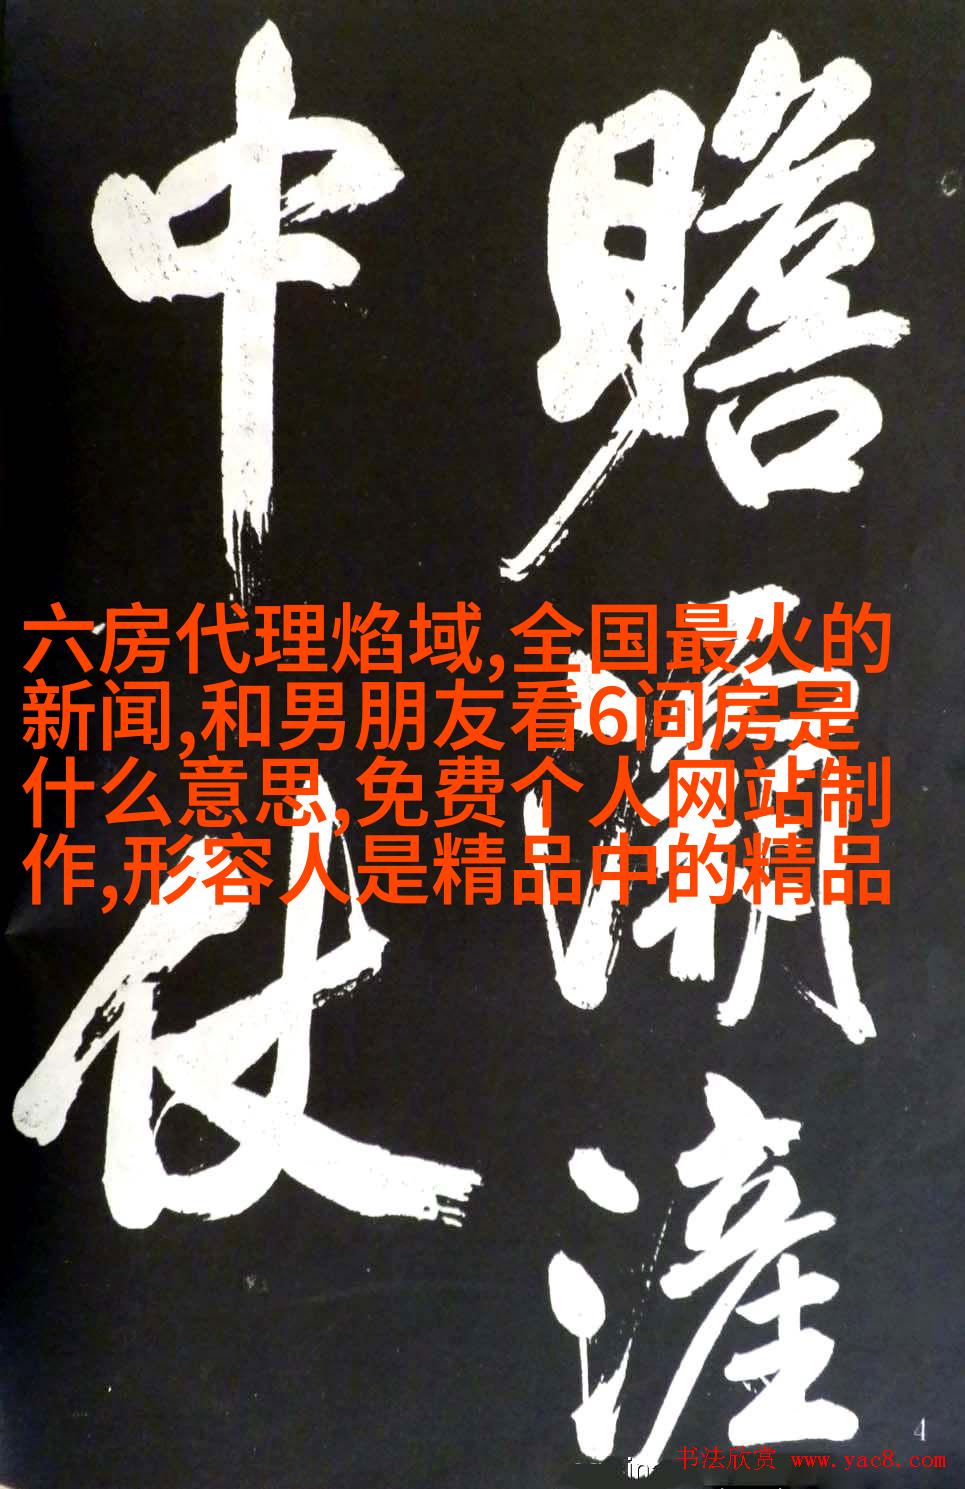 瞻灞滻
中仗
六房代理焰域,全国最火的
新闻,和男朋友看6间房是
什么意思,免费个人网站制
作,形容人是精品中的精品
4
书法欣赏 www.yac8.com